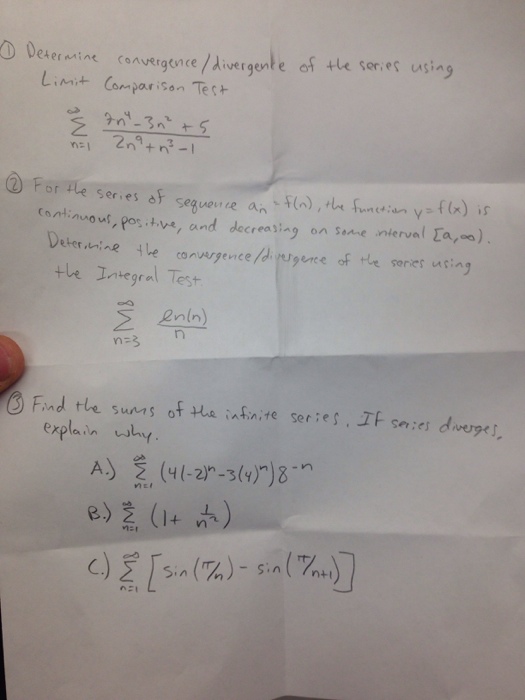 ① Determine convergence/divergence of the series using
Limit Comparison Test
∞ Σ n=1 (7n⁴-3n²+5)/(2n⁹+n³-1)
② For the series of sequence aₙ = f(n), the function y=f(x) is
continuous, positive, and decreasing on some interval [a,∞).
Determine the convergence/divergence of the series using
the Integral Test
∞ Σ n=3 ln(n)/n
③ Find the sums of the infinite series. If series diverges,
explain why.
A.) ∞ Σ n=1 (4(-2)ⁿ-3(4)ⁿ)8⁻ⁿ
B.) ∞ Σ n=1 (1+ 1/n²)
C.) ∞ Σ n=1 [sin(π/n)-sin(π/n+1)]